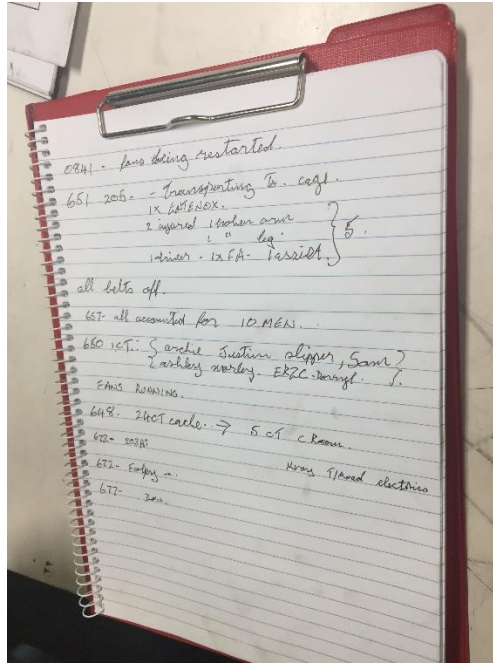 0841 - fans being restarted.
651 205 - - Transporting to. cage.
1X ENTENOX.
2 injured 1 broken arm
1 " leg
1 driver - 1X FA - 1 assist. } 5.
all belts off.
657 - all accounted for 10 MEN.
650 ICT: { archie Justin slipper, Sam }
{ ashley worley ERZC - Darryl }.
FANS RUNNING.
648. 24CT cache. -> 5 CT C Room.
672 -
672 -
electrics
677 -